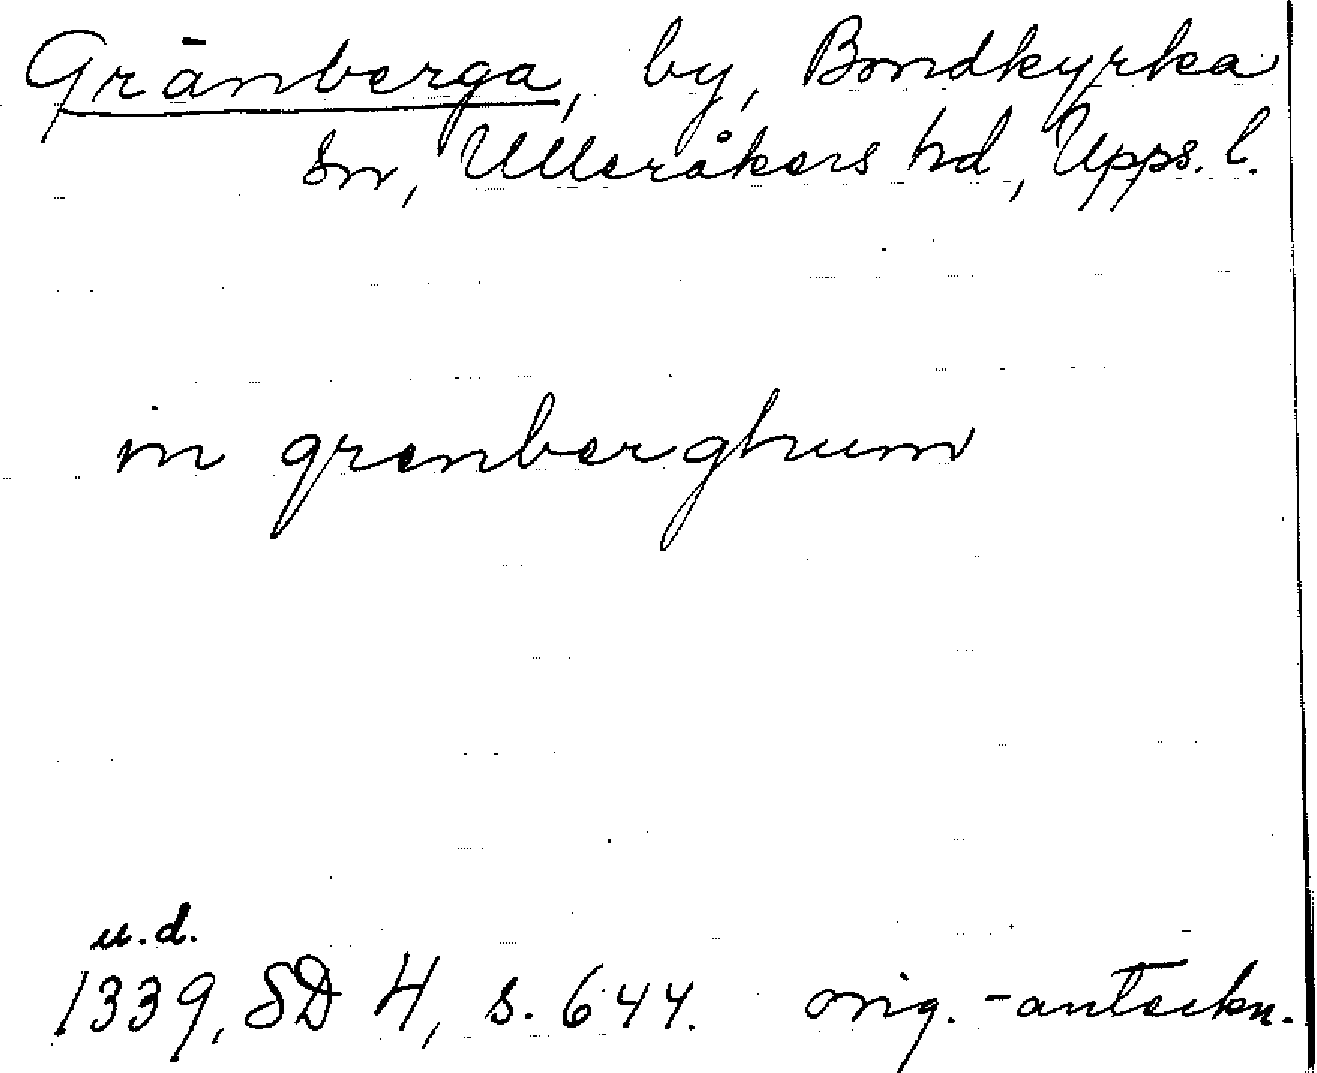 Gränberga, by, Bondkyrka
sn, Ulleråkers hd, Upps. l.
in grenberghum
u.d.
1339, SD 4, s. 644. orig.-anteckn.